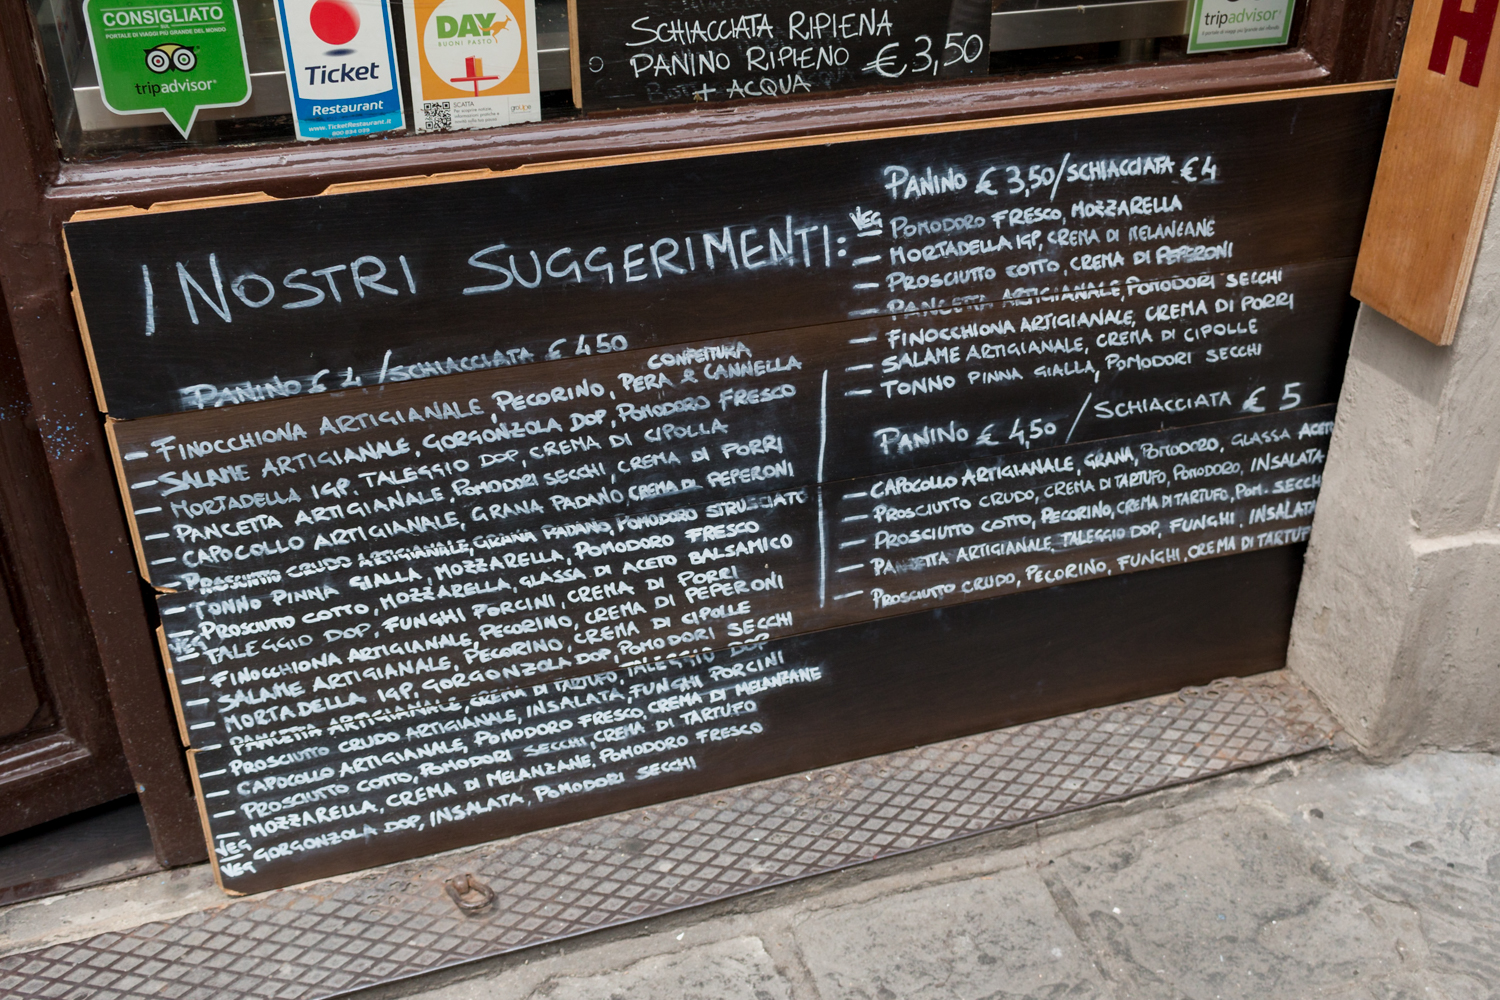 CONSIGLIATO
SUL
PORTALE DI VIAGGI PIÙ GRANDE DEL MONDO
tripadvisor
Ticket
Restaurant
www.TicketRestaurant.it
800 834 009
DAY
BUONI PASTO
SCATTA
SCHIACCIATA RIPIENA
PANINO RIPIENO € 3,50
+ ACQUA
tripadvisor
H
I NOSTRI SUGGERIMENTI:
PANINO € 4 / SCHIACCIATA € 4 50
- FINOCCHIONA ARTIGIANALE, PECORINO, CONFETTURA PERA & CANNELLA
- SALAME ARTIGIANALE, GORGONZOLA DOP, POMODORO FRESCO
- MORTADELLA IGP, TALEGGIO DOP, CREMA DI CIPOLLA
- PANCETTA ARTIGIANALE, POMODORI SECCHI, CREMA DI PORRI
- CAPOCOLLO ARTIGIANALE, GRANA PADANO, CREMA DI PEPERONI
- PROSCIUTTO CRUDO ARTIGIANALE, GRANA PADANO, POMODORO STRUSCIATO
- TONNO PINNA GIALLA, MOZZARELLA, POMODORO FRESCO
- PROSCIUTTO COTTO, MOZZARELLA, GLASSA DI ACETO BALSAMICO
VEG TALEGGIO DOP, FUNGHI PORCINI, CREMA DI PORRI
- FINOCCHIONA ARTIGIANALE, PECORINO, CREMA DI PEPERONI
- SALAME ARTIGIANALE, PECORINO, CREMA DI CIPOLLE
- MORTADELLA IGP, GORGONZOLA DOP, POMODORI SECCHI
- PANCETTA ARTIGIANALE, CREMA DI TARTUFO, TALEGGIO DOP
- PROSCIUTTO CRUDO ARTIGIANALE, INSALATA, FUNGHI PORCINI
- CAPOCOLLO ARTIGIANALE, POMODORO FRESCO, CREMA DI MELANZANE
- PROSCIUTTO COTTO, POMODORI SECCHI, CREMA DI TARTUFO
VEG MOZZARELLA, CREMA DI MELANZANE, POMODORO FRESCO
VEG GORGONZOLA DOP, INSALATA, POMODORI SECCHI
PANINO € 3,50/SCHIACCIATA € 4
VEG POMODORO FRESCO, MOZZARELLA
- MORTADELLA IGP, CREMA DI MELANZANE
- PROSCIUTTO COTTO, CREMA DI PEPERONI
- PANCETTA ARTIGIANALE, POMODORI SECCHI
- FINOCCHIONA ARTIGIANALE, CREMA DI PORRI
- SALAME ARTIGIANALE, CREMA DI CIPOLLE
- TONNO PINNA GIALLA, POMODORI SECCHI
PANINO € 4,50 / SCHIACCIATA € 5
- CAPOCOLLO ARTIGIANALE, GRANA, POMODORO, GLASSA ACETO
- PROSCIUTTO CRUDO, CREMA DI TARTUFO, POMODORO, INSALATA
- PROSCIUTTO COTTO, PECORINO, CREMA DI TARTUFO, POM. SECCHI
- PANCETTA ARTIGIANALE, TALEGGIO DOP, FUNGHI, INSALATA
- PROSCIUTTO CRUDO, PECORINO, FUNGHI, CREMA DI TARTUF